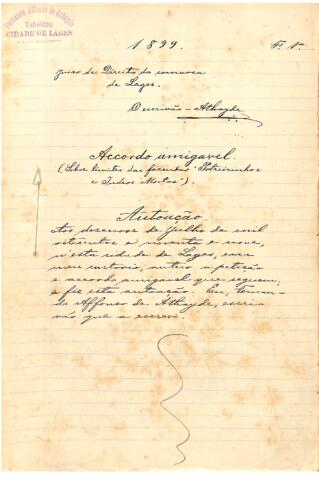 Fernando Affonso de Athayde
Tabellião
CIDADE DE LAGES
1899. Fs. 1a
Juizo de Direito da comarca
de Lages.
O escrivão - Athayde
Accordo amigavel.
(Sobre limites das fazendas "Potreirinhos
e Indios Mortos").
Autoação
Aos deseseis de Julho de mil
oitocentos e noventa e nove,
n'esta cidade de Lages, em
meu cartorio, autuo a petição
e accordo amigavel que seguem;
e fiz esta autuação. Eu, Fernan-
do Affonso de Athayde, escri-
vão que a escrevi.